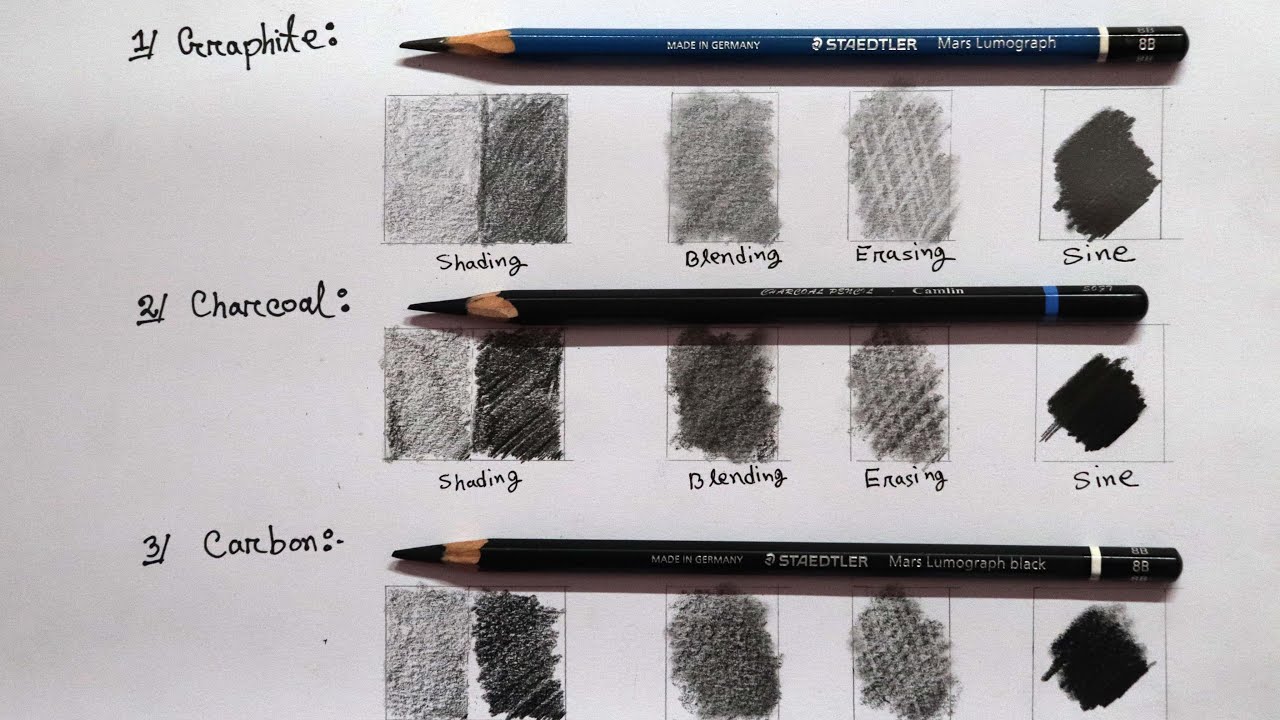 1/ Graphite:
MADE IN GERMANY STAEDTLER Mars Lumograph 8B
Shading Blending Erasing Sine
2/ Charcoal:
CHARCOAL PENCIL · Camlin
Shading Blending Erasing Sine
3/ Carbon:-
MADE IN GERMANY STAEDTLER Mars Lumograph black 8B